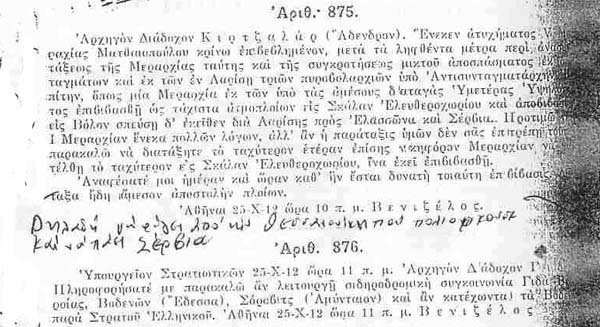 Ἀριθ. 875.
Ἀρχηγὸν Διάδοχον Κιρτζαλὰρ (Ἄδενδρον). Ἕνεκεν ἀτυχήματος V με-
ραχίας Ματθαιοπούλου κρίνω ἐπιβεβλημένον, μετὰ τὰ ληφθέντα μέτρα περὶ ἀνα-
τάξεως τῆς Μεραρχίας ταύτης καὶ τῆς συγκροτήσεως μικτοῦ ἀποσπάσματος ἐκ
ταγμάτων καὶ ἐκ τῶν ἐν Λαρίσῃ τριῶν πυροβολαρχιῶν ὑπὸ Ἀντισυνταγματάρχην
πίτην, ὅπως μία Μεραρχία ἐκ τῶν ὑπὸ τὰς ἀμέσους δ'αταγὰς Ὑμετέρας Ὑψη-
τος ἐπιβιβασθῇ ὡς τάχιστα ἀτμοπλοίων εἰς Σκάλαν Ἐλευθεροχωρίου καὶ ἀποβιβα
εἰς Βόλον σπεύσῃ δ' ἐκεῖθεν διὰ Λαρίσης πρὸς Ἐλασσῶνα καὶ Σέρβια.. Προτιμῶ
Ι Μεραρχίαν ἕνεκα πολλῶν λόγων, ἀλλ' ἂν ἡ παράταξις ὑμῶν δὲν σᾶς ἐπιτρέπῃ το
παρακαλῶ νὰ διατάξητε τὸ ταχύτερον ἑτέραν ἐπίσης νικηφόρον Μεραρχίαν νὰ
τέλθῃ τὸ ταχύτερον εἰς Σκάλαν Ἐλευθεροχωρίου, ἵνα ἐκεῖ ἐπιβιβασθῇ.
Ἀναφέρατέ μοι ἡμέραν καὶ ὥραν καθ' ἣν ἔσται δυνατὴ τοιαύτη ἐπιβίβασις.
ταξα ἤδη ἄμεσον ἀποστολὴν πλοίων.
Ἀθῆναι 25-Χ-12 ὥρα 10 π. μ. Βενιζέλος.
Δηλαδὴ νὰ φύγει ἀπὸ τὴν Θεσσαλονίκη ποὺ πολιορκοῦσε
καὶ νὰ πάει Σέρβια
Ἀριθ. 876.
Ὑπουργεῖον Στρατιωτικῶν 25-Χ-12 ὥρα 11 π. μ. Ἀρχηγὸν Δ'άδοχον
Πληροφορήσατέ με παρακαλῶ ἂν λειτουργῇ σιδηροδρομικὴ συγκοινωνία Γιδᾶ Βερ-
ροίας, Βοδενῶν (Ἔδεσσα), Σόροβιτς (Ἀμύνταιον) καὶ ἂν κατέχωνται τὰ Βοδ
παρὰ Στρατοῦ Ἑλληνικοῦ. Ἀθῆναι 25-Χ-12 ὥρα 11 π. μ. Βενιζέλος